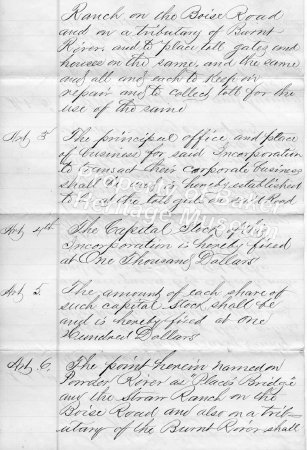 Ranch on the Boise Road
and on a tributary of Burnt
River, and to place toll gates and
houses on the same, and the same
and all and each to keep in
repair and to collect toll for the
use of the same
Art, 3 The principal office and place
of business for said Incorporation
to transact their corporate business
shall be and is hereby established
to be at the toll gate on said Road
Art, 4th The Capital Stock of this
Incorporation is hereby fixed
at One Thousand Dollars
Art, 5. The amount of each share of
such capital Stock shall be
and is hereby fixed at one
Hundred Dollars
Art, 6. The point herein named on
Powder River as "Places Bridge"
and the Straw Ranch on the
Boise Road and also on a trib-
utary of the Burnt River shall
Heritage Museum